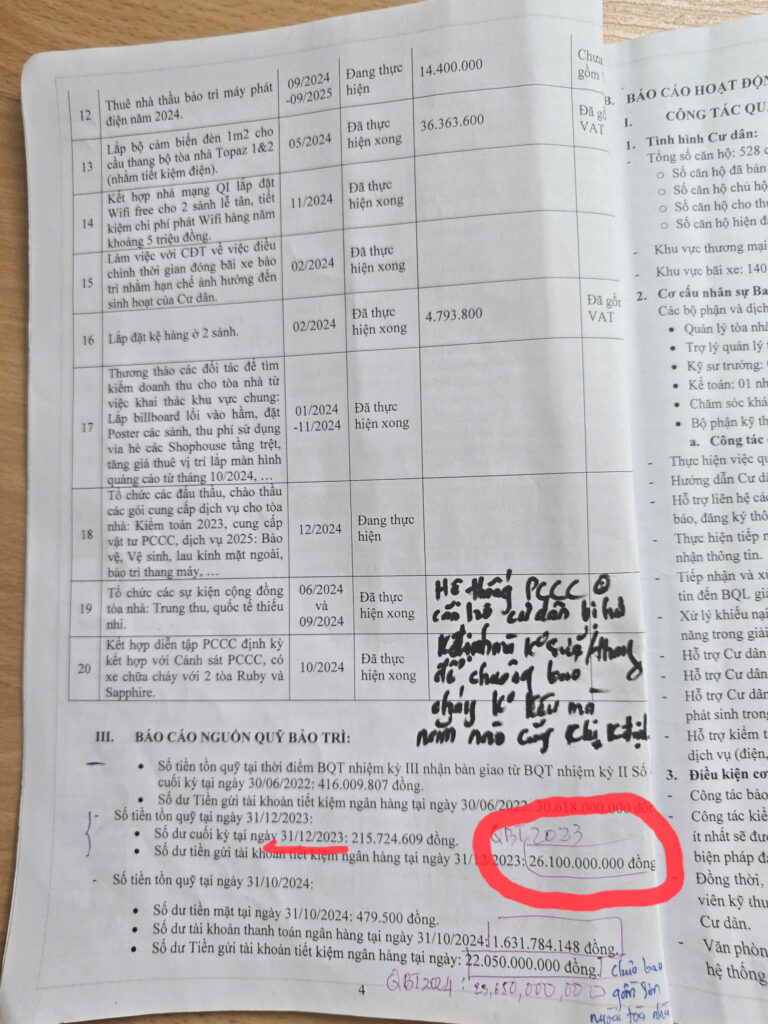 12
Thuê nhà thầu bảo trì máy phát
điện năm 2024.
09/2024
-09/2025
Đang thực
hiện
14.400.000
Chưa
gồm
13
Lắp bộ cảm biến đèn 1m2 cho
cầu thang bộ tòa nhà Topaz 1&2
(nhằm tiết kiệm điện).
05/2024
Đã thực
hiện xong
36.363.600
Đã gồ
VAT
14
Kết hợp nhà mạng QI lắp đặt
Wifi free cho 2 sảnh lễ tân, tiết
kiệm chi phí phát Wifi hàng năm
khoảng 5 triệu đồng.
11/2024
Đã thực
hiện xong
15
Làm việc với CĐT về việc điều
chỉnh thời gian đóng bãi xe bảo
trì nhằm hạn chế ảnh hưởng đến
sinh hoạt của Cư dân.
02/2024
Đã thực
hiện xong
16
Lắp đặt kệ hàng ở 2 sảnh.
02/2024
Đã thực
hiện xong
4.793.800
Đã gồn
VAT
17
Thương thảo các đối tác để tìm
kiếm doanh thu cho tòa nhà từ
việc khai thác khu vực chung:
Lắp billboard lối vào hầm, đặt
Poster các sảnh, thu phí sử dụng
vỉa hè các Shophouse tầng trệt,
tăng giá thuê vị trí lắp màn hình
quảng cáo từ tháng 10/2024, …
01/2024
-11/2024
Đã thực
hiện xong
18
Tổ chức các đấu thầu, chào thầu
các gói cung cấp dịch vụ cho tòa
nhà: Kiểm toán 2023, cung cấp
vật tư PCCC, dịch vụ 2025: Bảo
vệ, Vệ sinh, lau kính mặt ngoài,
bảo trì thang máy, …
12/2024
Đang thực
hiện
19
Tổ chức các sự kiện cộng đồng
tòa nhà: Trung thu, quốc tế thiếu
nhi.
06/2024
và
09/2024
Đã thực
hiện xong
20
Kết hợp diễn tập PCCC định kỳ
kết hợp với Cảnh sát PCCC, có
xe chữa cháy với 2 tòa Ruby và
Sapphire.
10/2024
Đã thực
hiện xong
Hệ thống PCCC ở
căn hộ cư dân bị hư
mà K
để chuông báo
cháy K kêu mà
năm nào cũng
III. BÁO CÁO NGUỒN QUỸ BẢO TRÌ:
• Số tiền tồn quỹ tại thời điểm BQT nhiệm kỳ III nhận bàn giao từ BQT nhiệm kỳ II Số
cuối kỳ tại ngày 30/06/2022: 416.009.807 đồng.
• Số dư Tiền gửi tài khoản tiết kiệm ngân hàng tại ngày 30/06/2022: 30.618.000.000 đồn
- Số tiền tồn quỹ tại ngày 31/12/2023:
QBT 2023
• Số dư cuối kỳ tại ngày 31/12/2023: 215.724.609 đồng.
• Số dư tiền gửi tài khoản tiết kiệm ngân hàng tại ngày 31/12/2023: 26.100.000.000 đồng
- Số tiền tồn quỹ tại ngày 31/10/2024:
• Số dư tiền mặt tại ngày 31/10/2024: 479.500 đồng.
• Số dư tài khoản thanh toán ngân hàng tại ngày 31/10/2024: 1.631.784.148 đồng.
• Số dư Tiền gửi tài khoản tiết kiệm ngân hàng tại ngày: 22.050.000.000 đồng.
QBT 2024: 23,650,000,000
chưa bao
gồm sơn
ngoài tòa nhà
4
B. BÁO CÁO HOẠT ĐỘN
I. CÔNG TÁC QU
1. Tình hình Cư dân:
- Tổng số căn hộ: 528 c
○ Số căn hộ đã bán
○ Số căn hộ chủ hộ
○ Số căn hộ cho thu
○ Số căn hộ hiện đa
- Khu vực thương mại
- Khu vực bãi xe: 140
2. Cơ cấu nhân sự Ba
Các bộ phận và dịch
• Quản lý tòa nhà
• Trợ lý quản lý
• Kỹ sư trưởng:
• Kế toán: 01 nh
• Chăm sóc khá
• Bộ phận kỹ th
a. Công tác
- Thực hiện việc qu
- Hướng dẫn Cư dâ
- Hỗ trợ liên hệ các
báo, đăng ký thô
- Thực hiện tiếp n
nhận thông tin.
- Tiếp nhận và xử
tin đến BQL giả
- Xử lý khiếu nại
năng trong giải
- Hỗ trợ Cư dân
- Hỗ trợ Cư dân
- Hỗ trợ Cư dân
phát sinh trong
- Hỗ trợ kiểm t
dịch vụ (điện,
3. Điều kiện cơ
- Công tác bảo
- Công tác kiể
ít nhất sẽ đư
biện pháp đả
- Đồng thời,
viên kỹ thu
Cư dân.
- Văn phòn
hệ thống